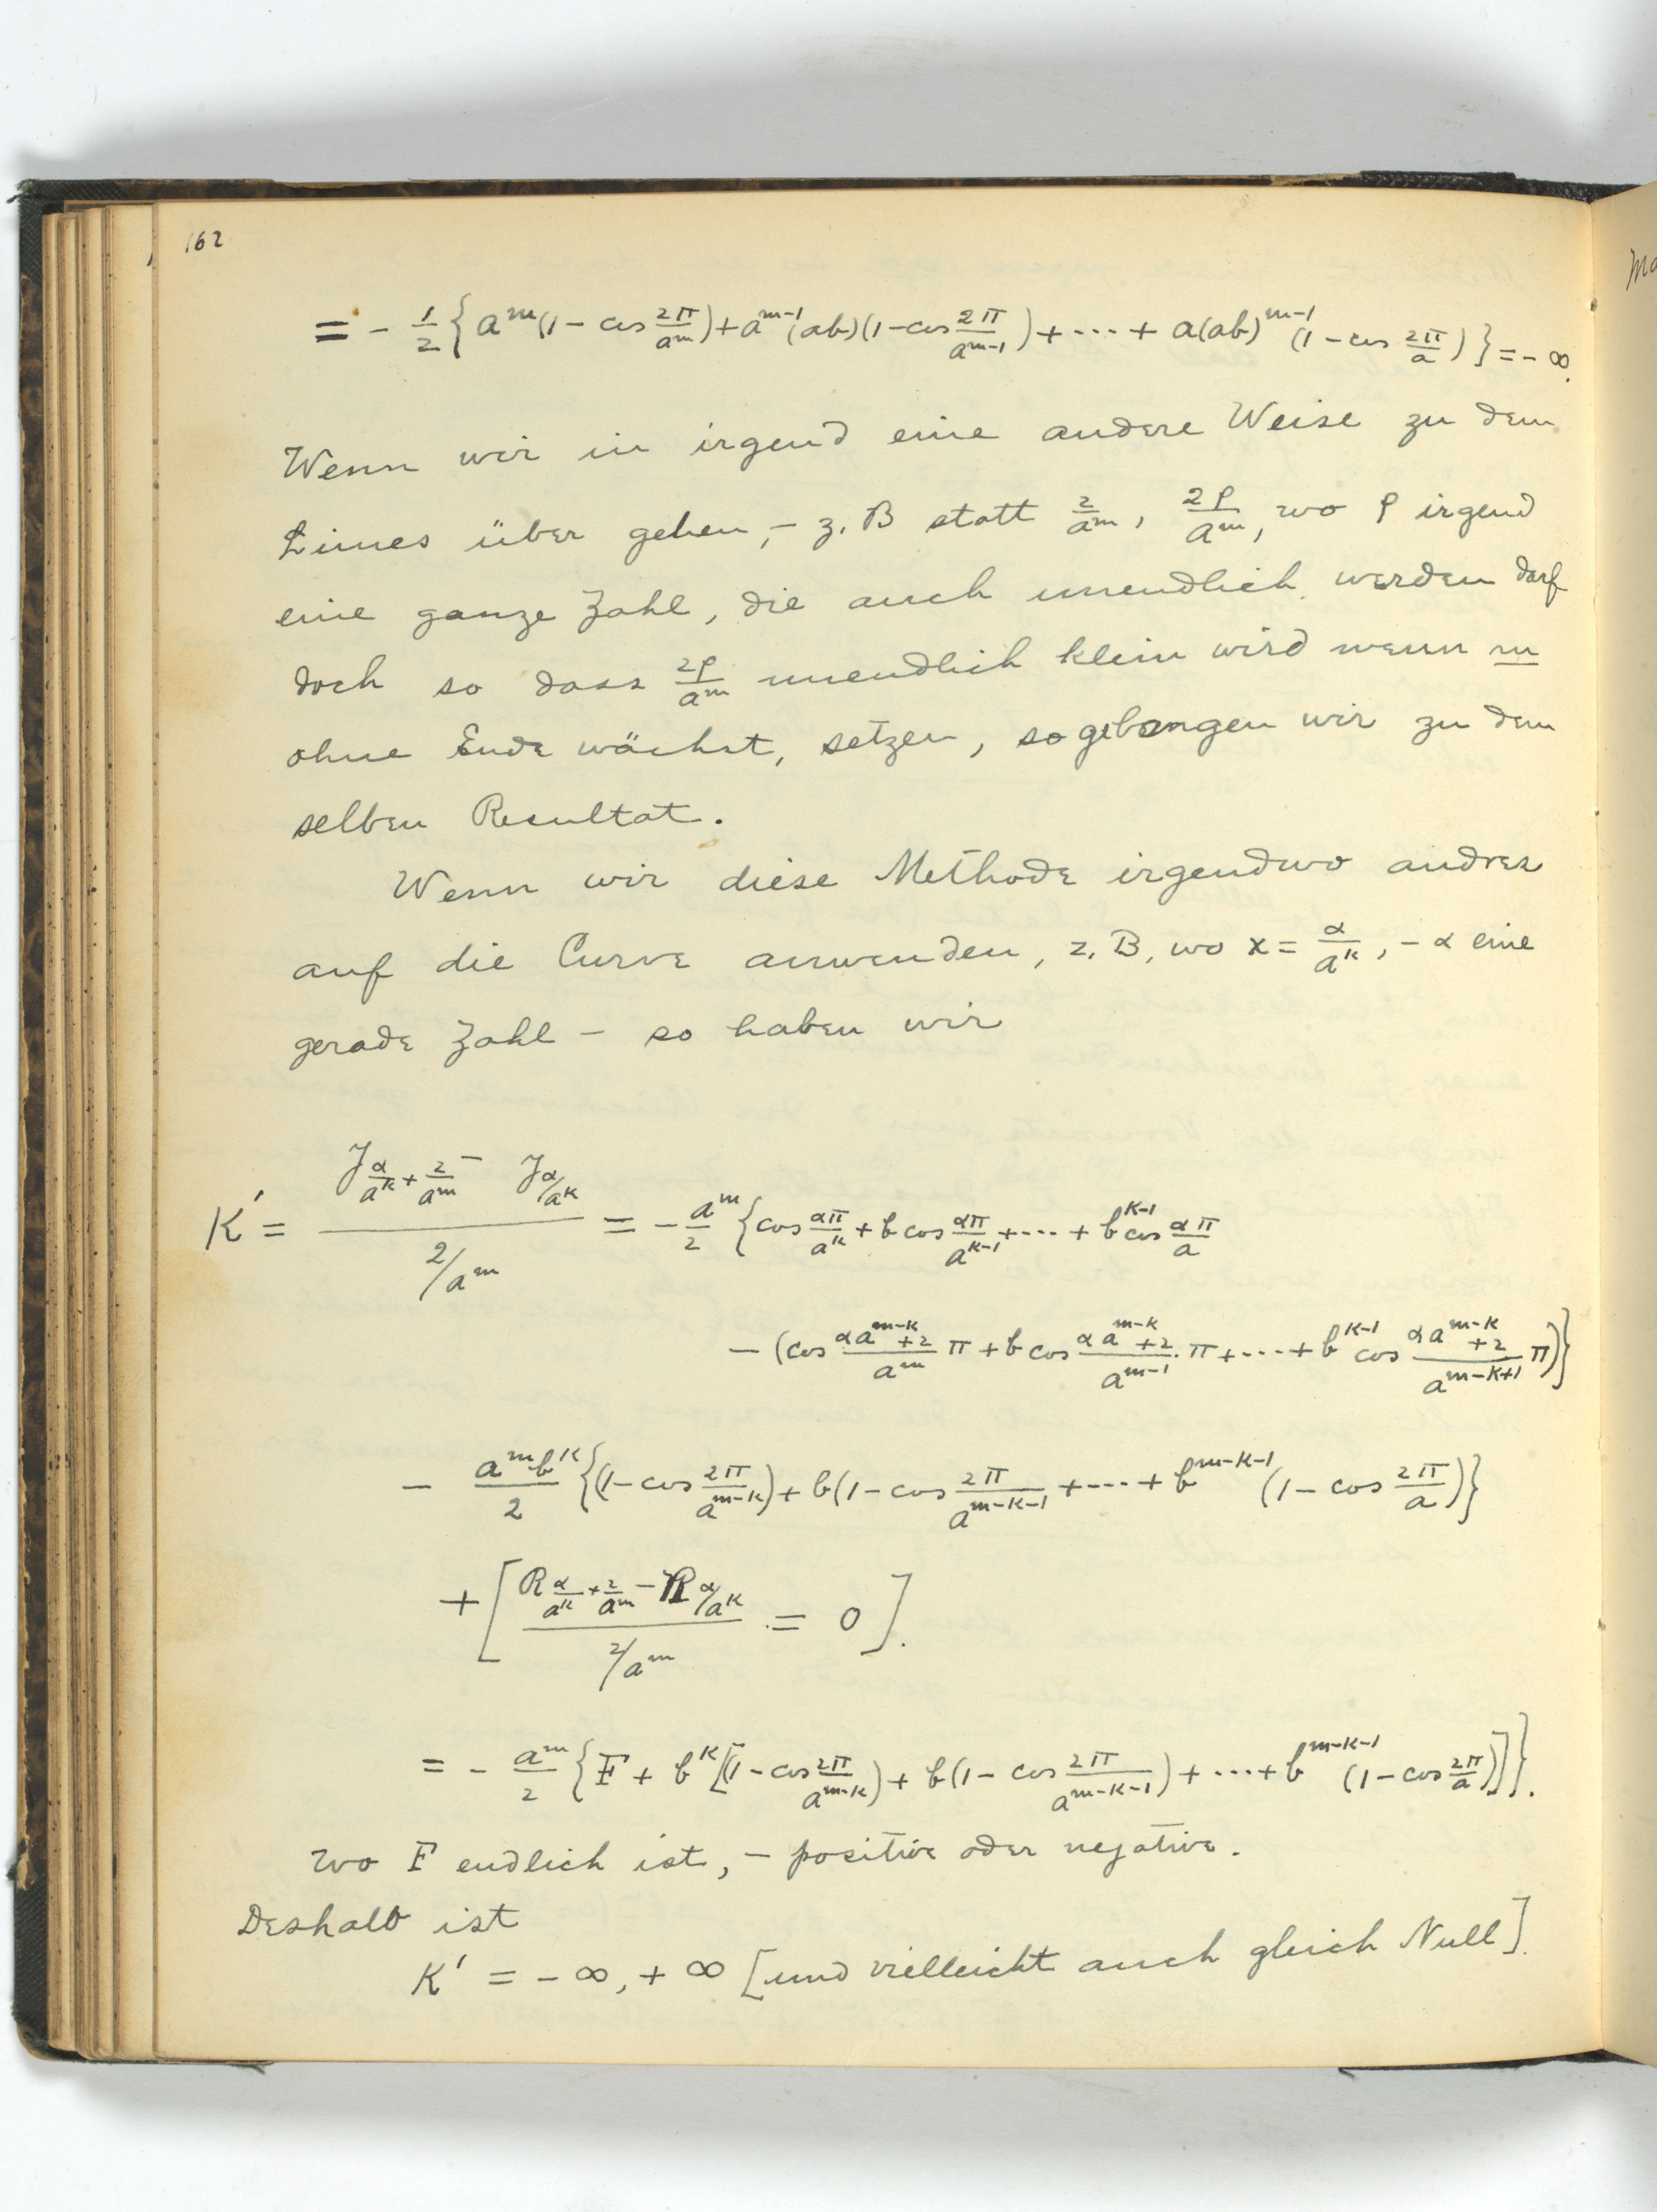 162
= - 1/2 { a^m (1 - cos 2π/a^m) + a^{m-1} (ab)(1 - cos 2π/a^{m-1}) + ··· + a(ab)^{m-1} (1 - cos 2π/a) } = - ∞.
Wenn wir in irgend eine andere Weise zu dem
Limes über gehen, - z. B statt 2/a^m, 2ρ/a^m, wo ρ irgend
eine ganze Zahl, die auch unendlich werden darf
doch so dass 2ρ/a^m unendlich klein wird wenn m
ohne Ende wächst, setzen, so gelangen wir zu dem
selben Resultat.
Wenn wir diese Methode irgendwo andres
auf die Curve anwenden, z. B, wo x = α/a^k, - α eine
gerade Zahl - so haben wir
K' = (J_{α/a^k + 2/a^m} - J_{α/a^k}) / (2/a^m) = - a^m/2 { cos απ/a^k + b cos απ/a^{k-1} + ··· + b^{k-1} cos απ/a
- (cos (αa^{m-k}+2)/a^m π + b cos (αa^{m-k}+2)/a^{m-1} · π + ··· + b^{k-1} cos (αa^{m-k}+2)/a^{m-k+1} π) }
- a^m b^k/2 { (1 - cos 2π/a^{m-k}) + b(1 - cos 2π/a^{m-k-1} + ··· + b^{m-k-1} (1 - cos 2π/a) }
+ [ (R_{α/a^k + 2/a^m} - R_{α/a^k}) / (2/a^m) = 0 ].
= - a^m/2 { F + b^k [(1 - cos 2π/a^{m-k}) + b(1 - cos 2π/a^{m-k-1}) + ··· + b^{m-k-1} (1 - cos 2π/a)] }.
wo F endlich ist, - positive oder negative.
Deshalb ist
K' = - ∞, + ∞ [und vielleicht auch gleich Null].